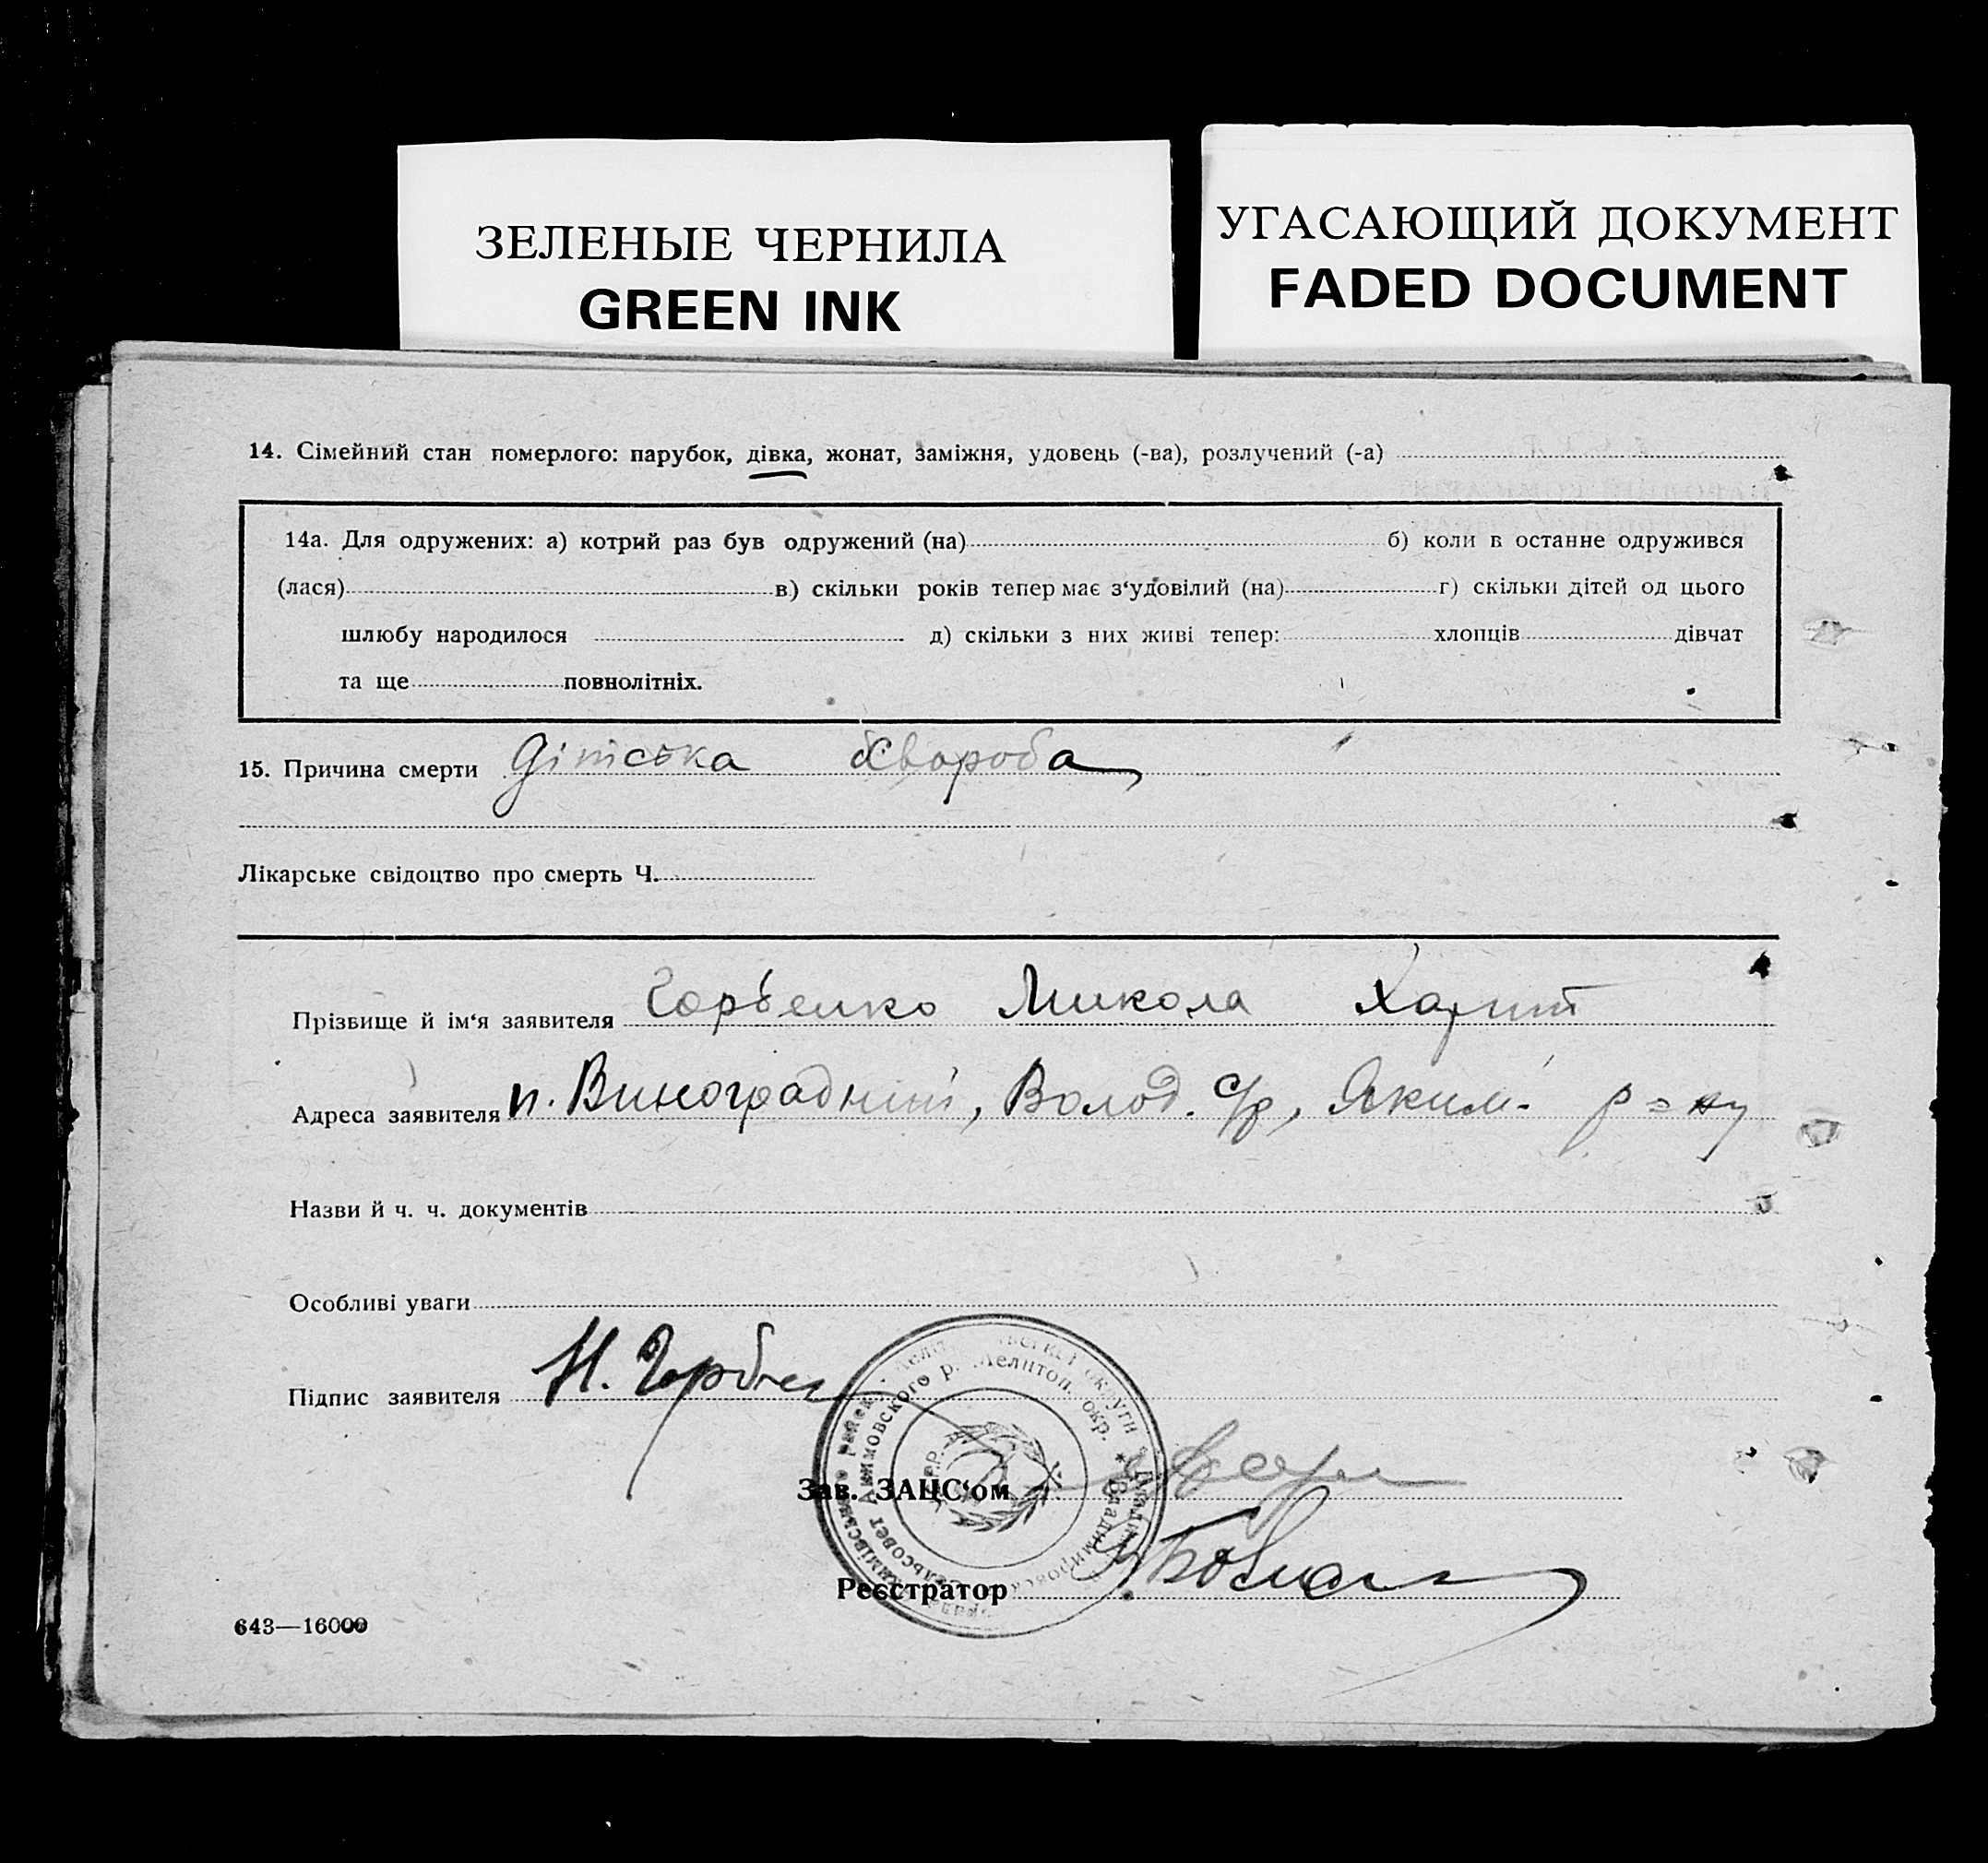 ЗЕЛЕНЫЕ ЧЕРНИЛА
GREEN INK
УГАСАЮЩИЙ ДОКУМЕНТ
FADED DOCUMENT
14. Сімейний стан померлого: парубок, дівка, жонат, заміжня, удовець (-ва), розлучений (-а)
14а. Для одружених: а) котрий раз був одружений (на) б) коли в останне одружився
(лася) в) скільки років тепер має з‘удовілий (на) г) скільки дітей од цього
шлюбу народилося д) скільки з них живі тепер: хлопців дівчат
та ще повнолітніх.
15. Причина смерти Дітська хвороба
Лікарське свідоцтво про смерть Ч.
Прізвище й ім‘я заявителя Горбенко Микола Харит
Адреса заявителя п. Виноградний, Волод. с/р, Яким. р-ну
Назви й ч. ч. документів
Особливі уваги
Підпис заявителя Н. Горбен
Зав. ЗАЦС‘ом
Реєстратор
Акимовского р. Мелитоп. окр. * Владимировск сельсовет
643—16000